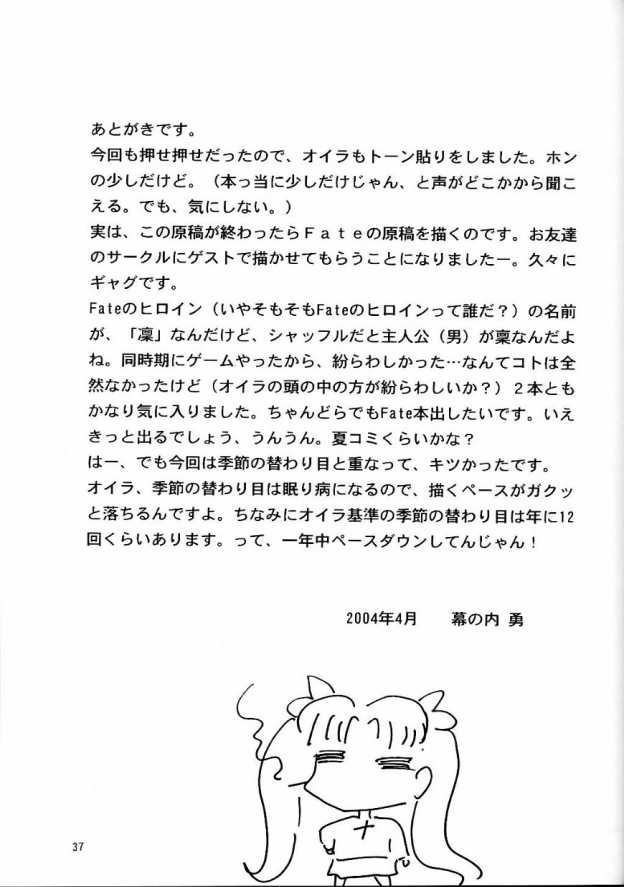 あとがきです。
今回も押せ押せだったので、オイラもトーン貼りをしました。ホン
の少しだけど。（本っ当に少しだけじゃん、と声がどこかから聞こ
える。でも、気にしない。）
実は、この原稿が終わったらＦａｔｅの原稿を描くのです。お友達
のサークルにゲストで描かせてもらうことになりましたー。久々に
ギャグです。
Fateのヒロイン（いやそもそもFateのヒロインって誰だ？）の名前
が、「凛」なんだけど、シャッフルだと主人公（男）が稟なんだよ
ね。同時期にゲームやったから、紛らわしかった…なんてコトは全
然なかったけど（オイラの頭の中の方が紛らわしいか？）２本とも
かなり気に入りました。ちゃんどらでもFate本出したいです。いえ
きっと出るでしょう、うんうん。夏コミくらいかな？
はー、でも今回は季節の替わり目と重なって、キツかったです。
オイラ、季節の替わり目は眠り病になるので、描くペースがガクッ
と落ちるんですよ。ちなみにオイラ基準の季節の替わり目は年に12
回くらいあります。って、一年中ペースダウンしてんじゃん！
2004年4月　幕の内 勇
37